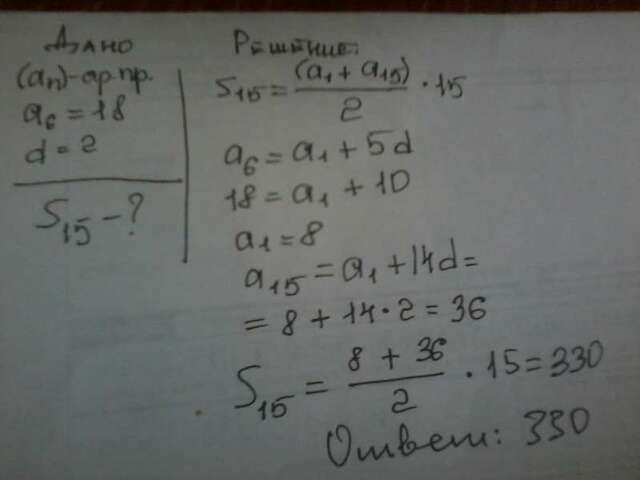 Дано
(an)-ар.пр.
a6 = 18
d = 2
S15 - ?
Решение:
S15 = (a1 + a15)/2 · 15
a6 = a1 + 5d
18 = a1 + 10
a1 = 8
a15 = a1 + 14d =
= 8 + 14·2 = 36
S15 = (8 + 36)/2 · 15 = 330
Ответ: 330